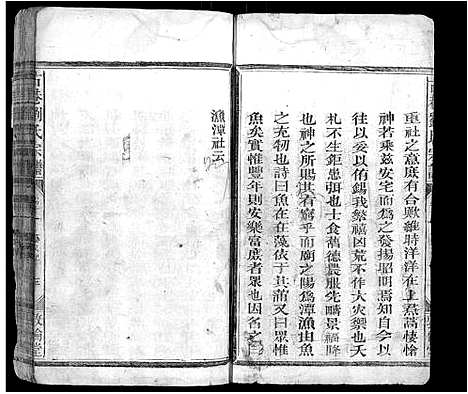 重社之意庶有合歟維時洋洋在上焄蒿悽愴
神若乘茲安宅而爲之發揚昭明也斯知自今以
往以妥以侑錫我繁禧凶荒不作大灾禦也夭
札不生鉅患弭也士食舊德農服先疇景
也神之所賜其有窮乎而廟之賜爲潭漁由魚
之充牣也詩曰魚在在藻依于其蒲又曰眾惟
魚矣實惟豐年則安樂富庶者眾也因名之曰
漁潭社云
劉氏宗譜
敦倫堂